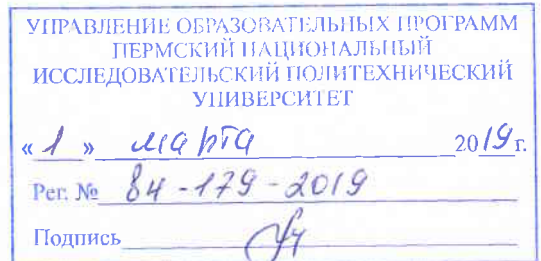 УПРАВЛЕНИЕ ОБРАЗОВАТЕЛЬНЫХ ПРОГРАММ
ПЕРМСКИЙ НАЦИОНАЛЬНЫЙ
ИССЛЕДОВАТЕЛЬСКИЙ ПОЛИТЕХНИЧЕСКИЙ
УНИВЕРСИТЕТ
« 1 » марта 2019 г.
Рег. № 84-179-2019
Подпись